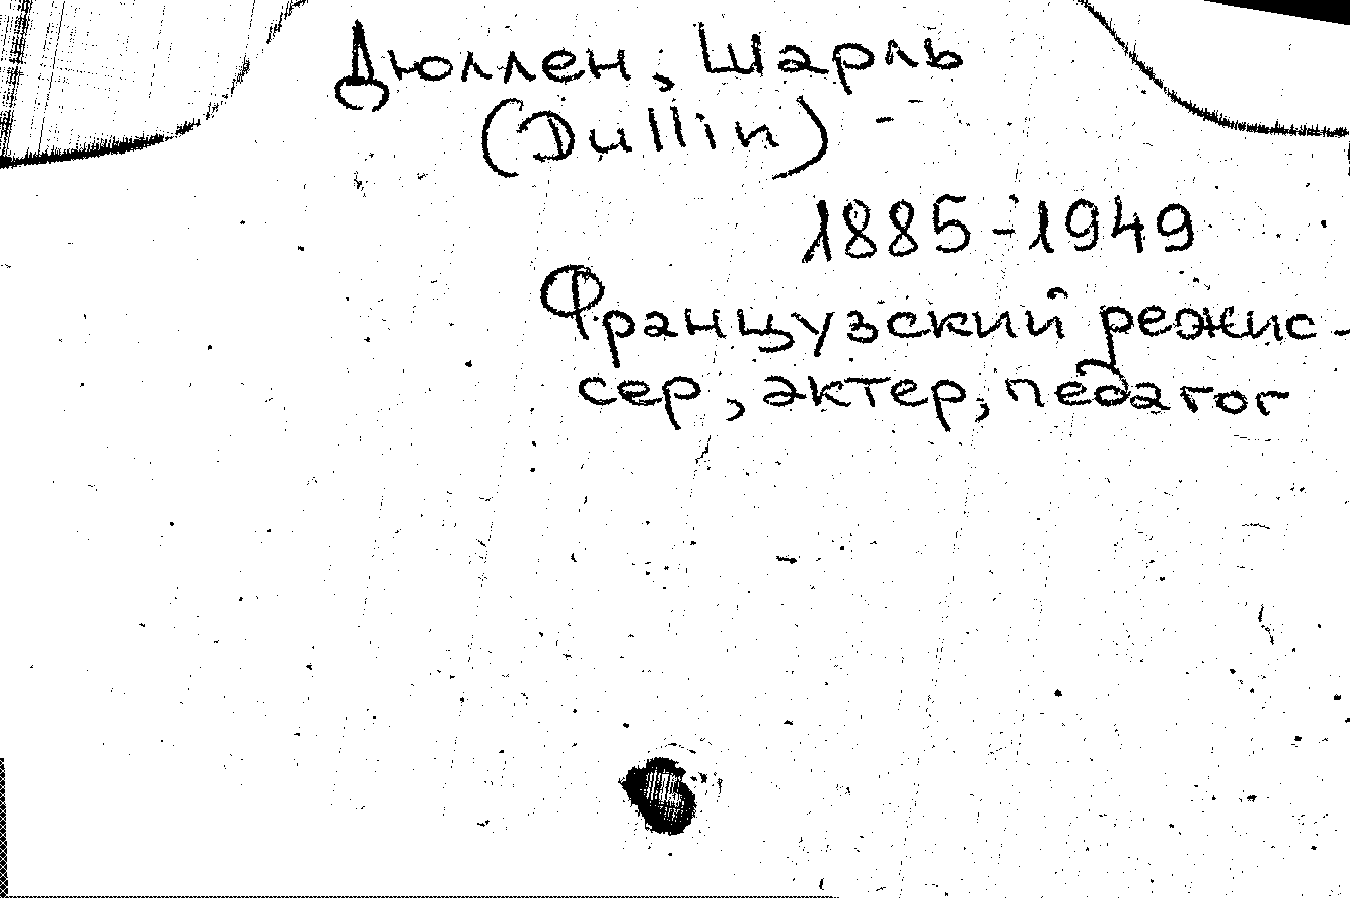 Дюллен, Шарль
(Dullin) -
1885-1949
Французский режис-
сер, актер, педагог